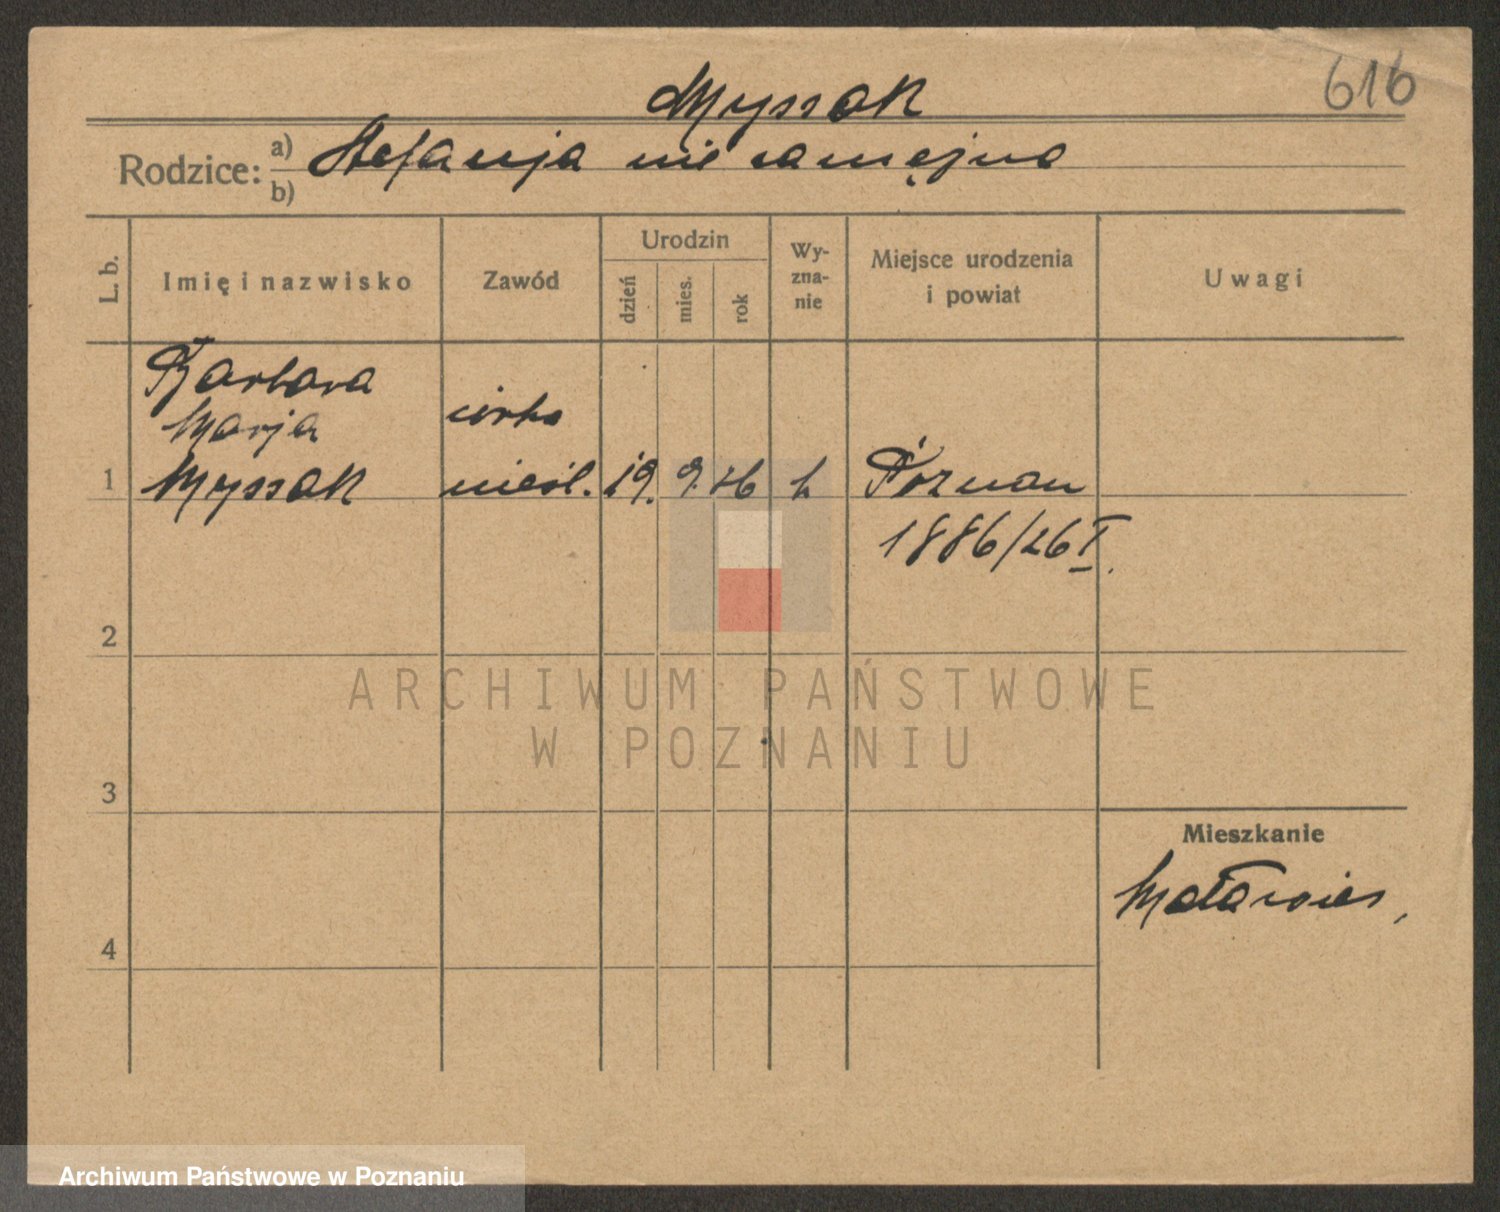 616
Myssak
Rodzice: a) Stefanja niezamężna
b)
L. b.
Imię i nazwisko
Zawód
Urodzin
dzień
mies.
rok
Wy-
zna-
nie
Miejsce urodzenia
i powiat
Uwagi
Barbara
Marja córka
1 Myssak nieśl. 19. 9. 26 k Poznań
1886/26 I.
2
3
4
Mieszkanie
Maławieś,
ARCHIWUM PAŃSTWOWE
W POZNANIU
Archiwum Państwowe w Poznaniu